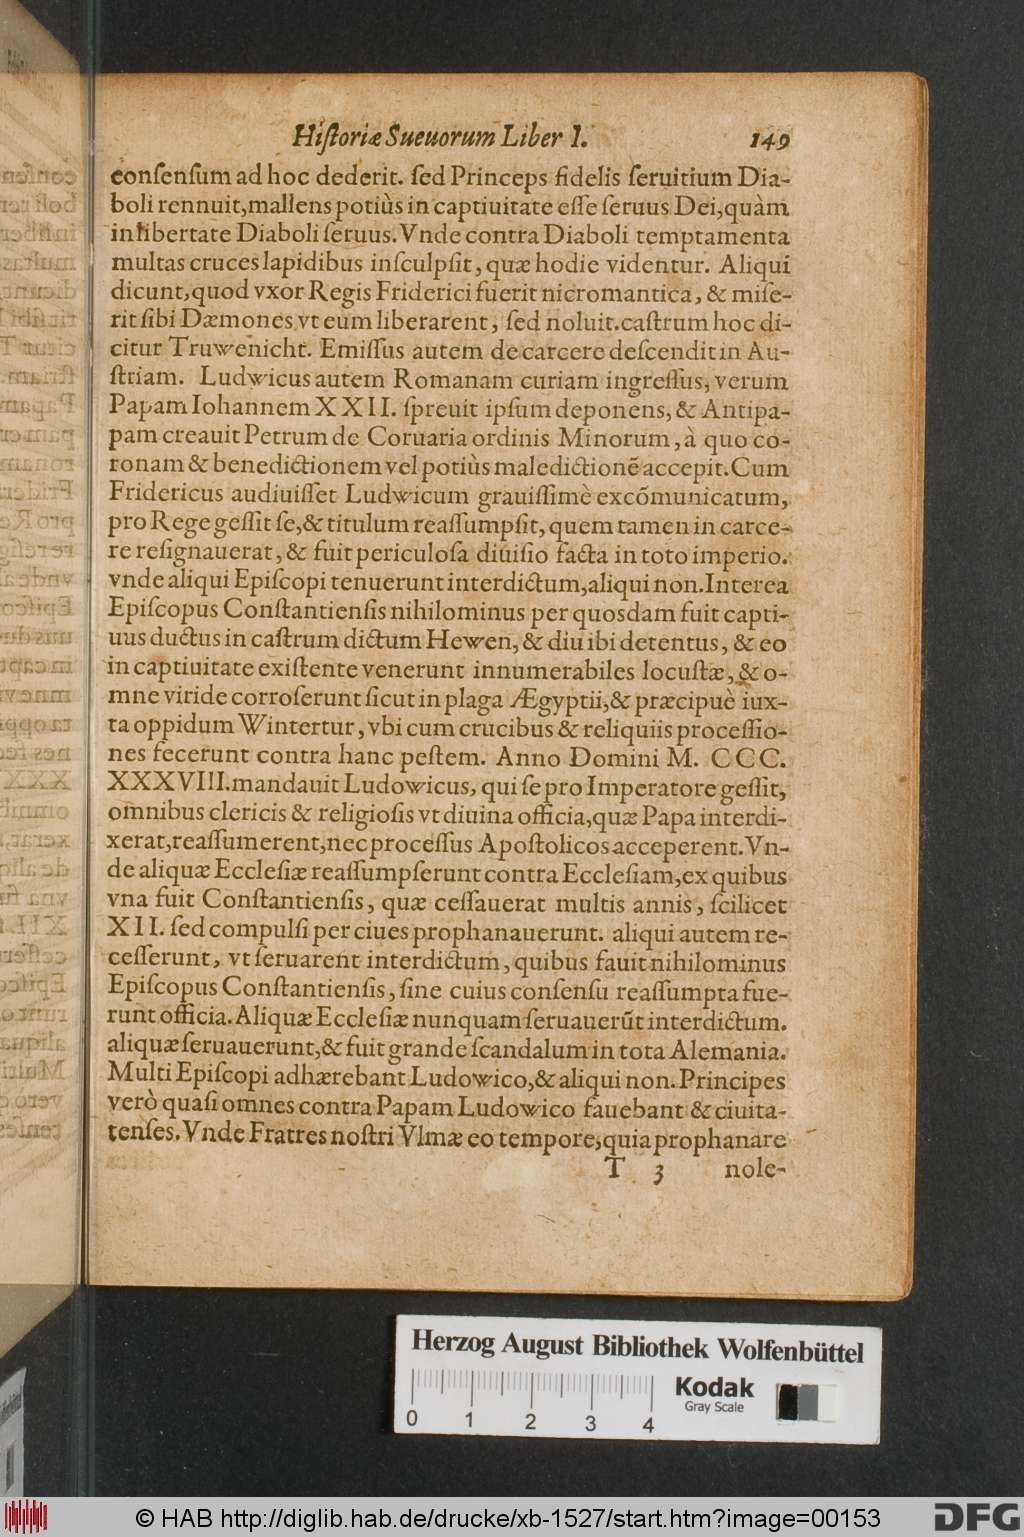 Hiſtoriæ Sueuorum Liber I. 149
conſenſum ad hoc dederit. ſed Princeps fidelis ſeruitium Dia-
boli rennuit, mallens potiùs in captiuitate eſſe ſeruus Dei, quàm
in libertate Diaboli ſeruus. Vnde contra Diaboli temptamenta
multas cruces lapidibus inſculpſit, quæ hodie videntur. Aliqui
dicunt, quod vxor Regis Friderici fuerit nicromantica, & miſe-
rit ſibi Dæmones vt eum liberarent, ſed noluit. caſtrum hoc di-
citur Truwenicht. Emiſſus autem de carcere deſcendit in Au-
ſtriam. Ludwicus autem Romanam curiam ingreſſus, verum
Papam Iohannem XXII. ſpreuit ipſum deponens, & Antipa-
pam creauit Petrum de Coruaria ordinis Minorum, à quo co-
ronam & benedictionem vel potiùs maledictionē accepit. Cum
Fridericus audiuiſſet Ludwicum grauiſſimè excōmunicatum,
pro Rege geſſit ſe, & titulum reaſſumpſit, quem tamen in carce-
re reſignauerat, & fuit periculoſa diuiſio facta in toto imperio.
vnde aliqui Epiſcopi tenuerunt interdictum, aliqui non. Interea
Epiſcopus Conſtantienſis nihilominus per quosdam fuit capti-
uus ductus in caſtrum dictum Hewen, & diu ibi detentus, & eo
in captiuitate exiſtente venerunt innumerabiles locuſtæ, & o-
mne viride corroſerunt ſicut in plaga Ægyptii, & præcipuè iux-
ta oppidum Wintertur, vbi cum crucibus & reliquiis proceſſio-
nes fecerunt contra hanc peſtem. Anno Domini M. CCC.
XXXVIII. mandauit Ludowicus, qui ſe pro Imperatore geſſit,
omnibus clericis & religioſis vt diuina officia, quæ Papa interdi-
xerat, reaſſumerent, nec proceſſus Apoſtolicos acceperent. Vn-
de aliquæ Eccleſiæ reaſſumpſerunt contra Eccleſiam, ex quibus
vna fuit Conſtantienſis, quæ ceſſauerat multis annis, ſcilicet
XII. ſed compulſi per ciues prophanauerunt. aliqui autem re-
ceſſerunt, vt ſeruarent interdictum, quibus fauit nihilominus
Epiſcopus Conſtantienſis, ſine cuius conſenſu reaſſumpta fue-
runt officia. Aliquæ Eccleſiæ nunquam ſeruauerūt interdictum.
aliquæ ſeruauerunt, & fuit grande ſcandalum in tota Alemania.
Multi Epiſcopi adhærebant Ludowico, & aliqui non. Principes
verò quaſi omnes contra Papam Ludowico fauebant & ciuita-
tenſes. Vnde Fratres noſtri Vlmæ eo tempore, quia prophanare
T 3 nole-
Herzog August Bibliothek Wolfenbüttel
Kodak
Gray Scale
0 1 2 3 4
© HAB http://diglib.hab.de/drucke/xb-1527/start.htm?image=00153
DFG